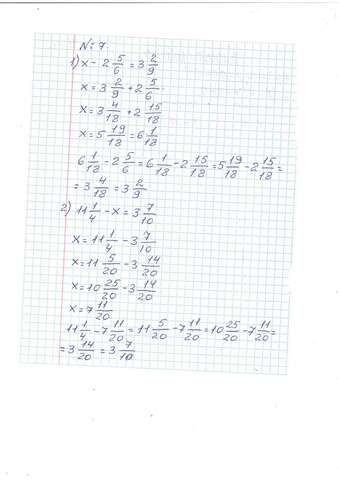 № 7
1) x - 2 5/6 = 3 2/9
x = 3 2/9 + 2 5/6
x = 3 4/18 + 2 15/18
x = 5 19/18 = 6 1/18
6 1/18 - 2 5/6 = 6 1/18 - 2 15/18 = 5 19/18 - 2 15/18 =
= 3 4/18 = 3 2/9
2) 11 1/4 - x = 3 7/10
x = 11 1/4 - 3 7/10
x = 11 5/20 - 3 14/20
x = 10 25/20 - 3 14/20
x = 7 11/20
11 1/4 - 7 11/20 = 11 5/20 - 7 11/20 = 10 25/20 - 7 11/20 =
= 3 14/20 = 3 7/10